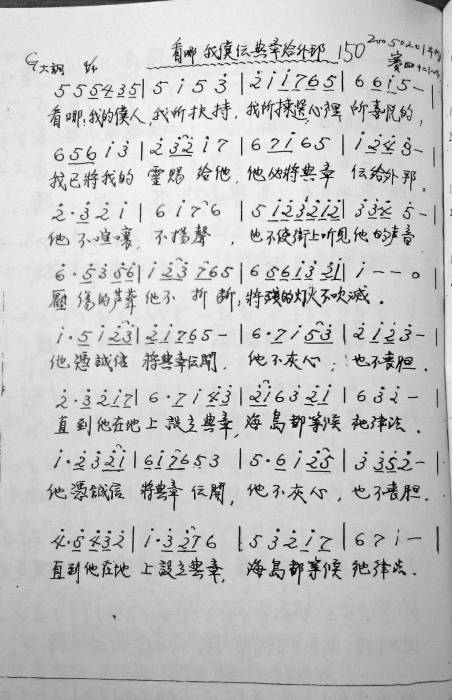 看哪 我僕傳典章給外邦 150
G大調 4/4
5 5 5 5 4 3 5 | 5 i 5 3 | 2 i i 7 6 5 | 6 6 i 5 - |
看哪,我的僕人,我所扶持,我所揀選心裡所喜悅的,
6 5 6 i 3 | 2 3 2 i 7 | 6 7 i 6 5 | i 2 4 3 - |
我已將我的靈賜給他,他必將典章傳給外邦。
2 · 3 2 i | 6 i 7 6 | 5 i 2 3 2 i 2 | 3 3 4 5 - |
他不喧嚷,不揚聲,也不使街上听見他的声音
6 · 5 3 5 6 | i 2 3 7 6 5 | 6 5 6 i 3 2 i | i - - 0
壓傷的芦葦他不折断,將殘的灯火不吹滅.
i · 5 i 2 3 | 2 i 7 6 5 - | 6 · 7 i 5 3 | 2 i 2 3 - |
他憑誠信將典章伝開,他不灰心;也不喪胆.
2 · 3 2 i 7 | 6 · 7 i 4 3 | 2 i 6 3 2 i | 6 3 2 - |
直到他在地上設立典章,海島都等候祂律法.
i · 2 3 2 i | 6 i 7 6 5 3 | 5 · 6 i 2 5 | 3 3 5 2 - |
他憑誠信將典章伝開,他不灰心,也不喪胆.
4 · 5 4 3 2 | i · 3 2 7 6 | 5 3 2 i 7 | 6 7 i - |
直到他在地上設立典章,海島都等候祂律法.